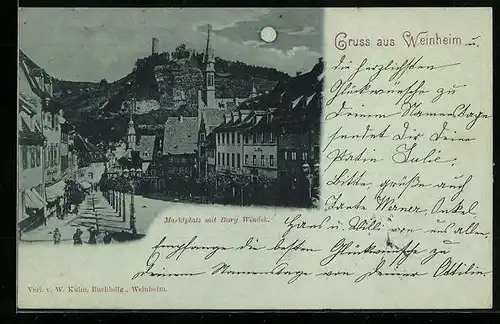 Gruss aus Weinheim
die herzlichsten
Glückwünsche zu
Deinem Namenstage
sendet Dir Deine
Patin Julie.
Bitte, grüße auch
Tante Werner, Onkel
Hans u. Willi von uns allen.
Marktplatz mit Burg Windek.
Empfange die besten Glückwünsche zu
Deinem Namenstage von Deiner Ottilie.
Verl. v. W. Kuhn, Buchhdlg., Weinheim.